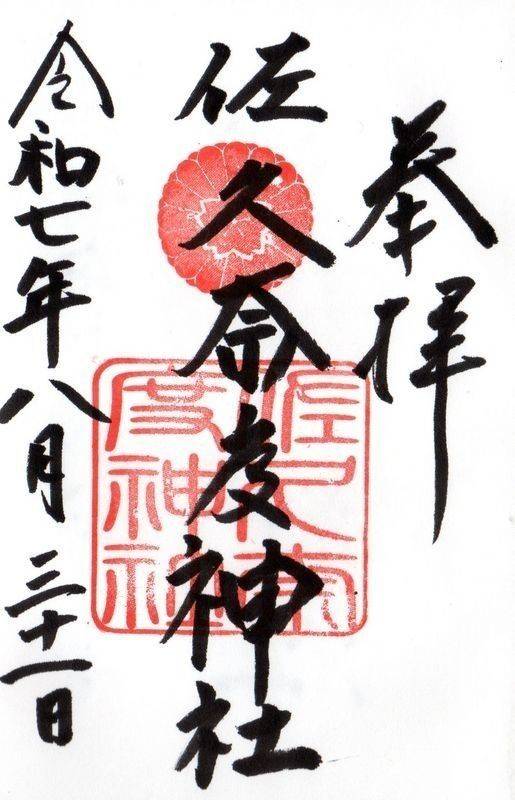 奉拝
佐久奈度神社
佐久奈度神社
令和七年八月三十一日